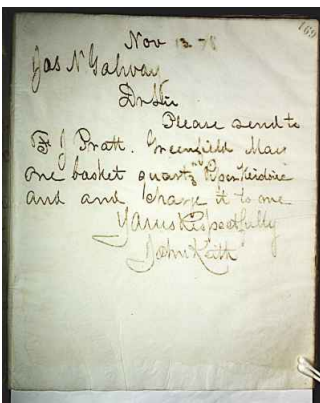 169
Nov 13 78
Jas N Galway
Dr Sir
Please send to
F J Pratt. Greenfield Mass
one basket quartz
and and charge it to me
Yours Respectfully
John Keith